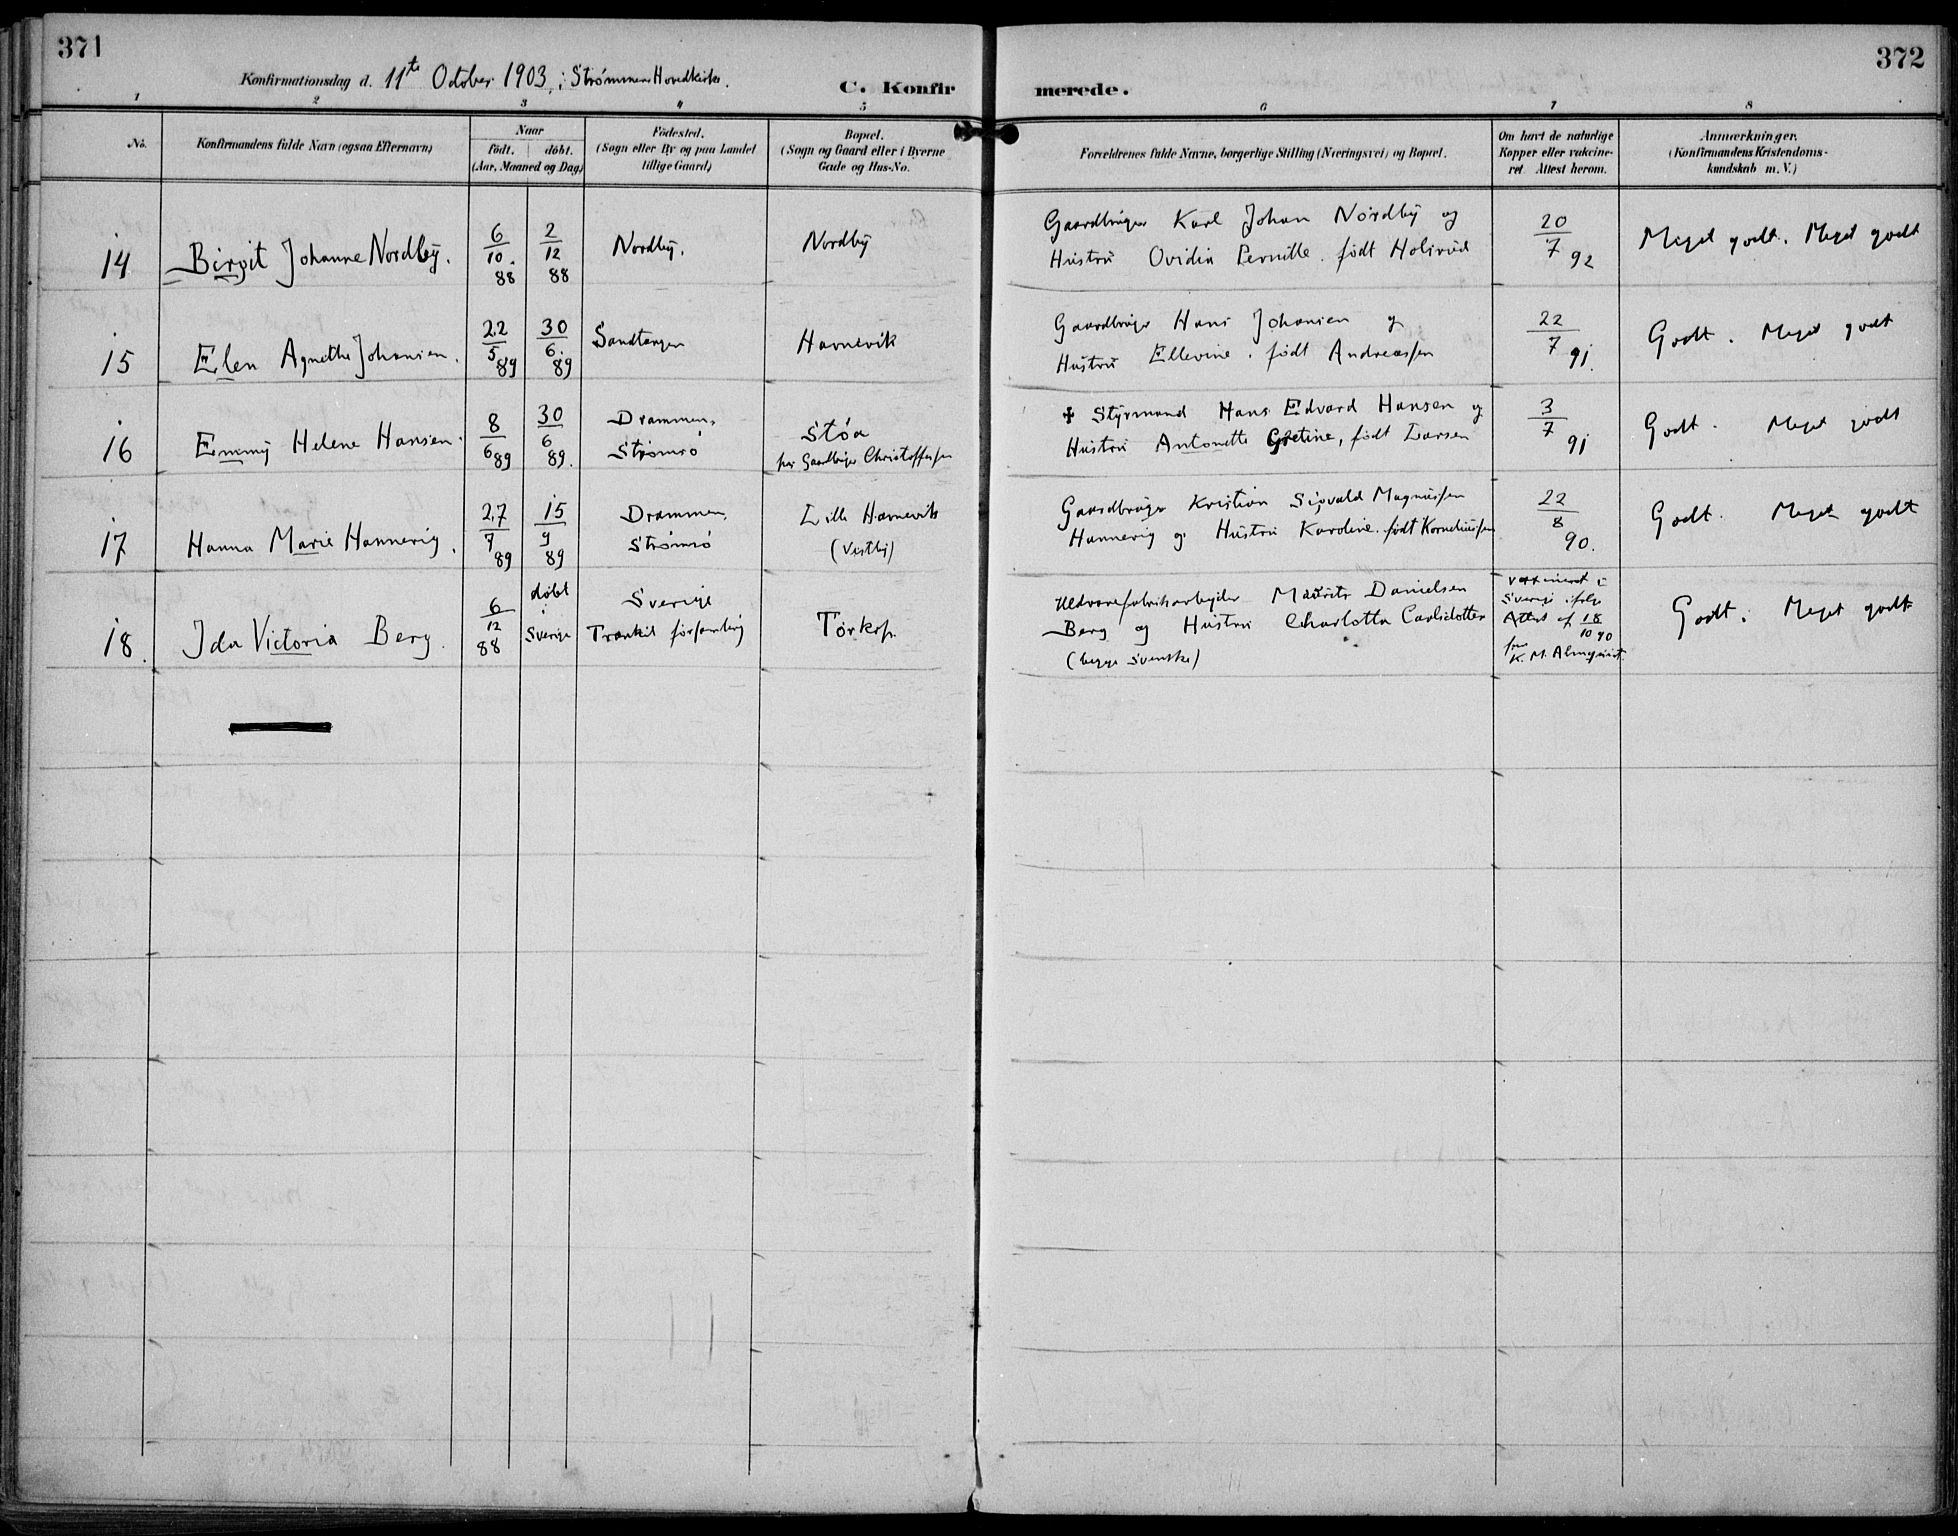 371
372
Konfirmationsdag d. 11te October 1903, i Strømmen Hovedkirke.
C. Konfirmerede.
1 2 3 4 5 6 7 8
No.
Konfirmandens fulde Navn (ogsaa Efternavn)
Naar
født. døbt.
(Aar, Maaned og Dag)
Fødested.
(Sogn eller By og paa Landet
tillige Gaard)
Bopæl.
(Sogn og Gaard eller i Byerne
Gade og Hus-No.
Forældrenes fulde Navne, borgerlige Stilling (Næringsvei) og Bopæl.
Om havt de naturlige
Kopper eller vakcine-
ret. Attest herom.
Anmærkninger.
(Konfirmandens Kristendoms-
kundskab m. V.)
14 Birgit Johanne Nordby. 6/10. 88 2/12 88 Nordby. Nordby
Gaardbruger Karl Johan Nordby og
Hustru Ovidia Pernille. født Holirud
20/7 92 Meget godt. Meget godt
15 Elen Agnethe Johansen. 22/5 89 30/6. 89 Sandtangen Havnevik
Gaardbruger Hans Johansen og
Hustru Ellevine. født Andreassen
22/7 91. Godt. Meget godt
16 Emmy Helene Hansen. 8/6 89 30/6 89. Drammen, Strømsø
Støa
hos Gaardbruger Christoffersen
✝ Styrmand Hans Edvard Hansen og
Hustru Antonette Gretine, født Larsen
3/7 91 Godt. Meget godt
17 Hanna Marie Hannevig. 27/7 89 15/9 89 Drammen, Strømsø
Lille Havnevik
(Vestby)
Gaardbruger Kristian Sigvald Magnussen
Hannevig og Hustru Karoline. født Korneliussen
22/8 90. Godt. Meget godt
18. Ida Victoria Berg. 6/12 88 døbt i Sverige
Sverige
Trankil församling
Torkop.
Uldvarefabrikarbeider Mauritz Danielsen
Berg og Hustru Charlotta Carlsdotter
(begge svenske)
vaxineret i
Sverige ifølge
Attest af 18/10 90
fra
K. M. Almqvist.
Godt. Meget godt